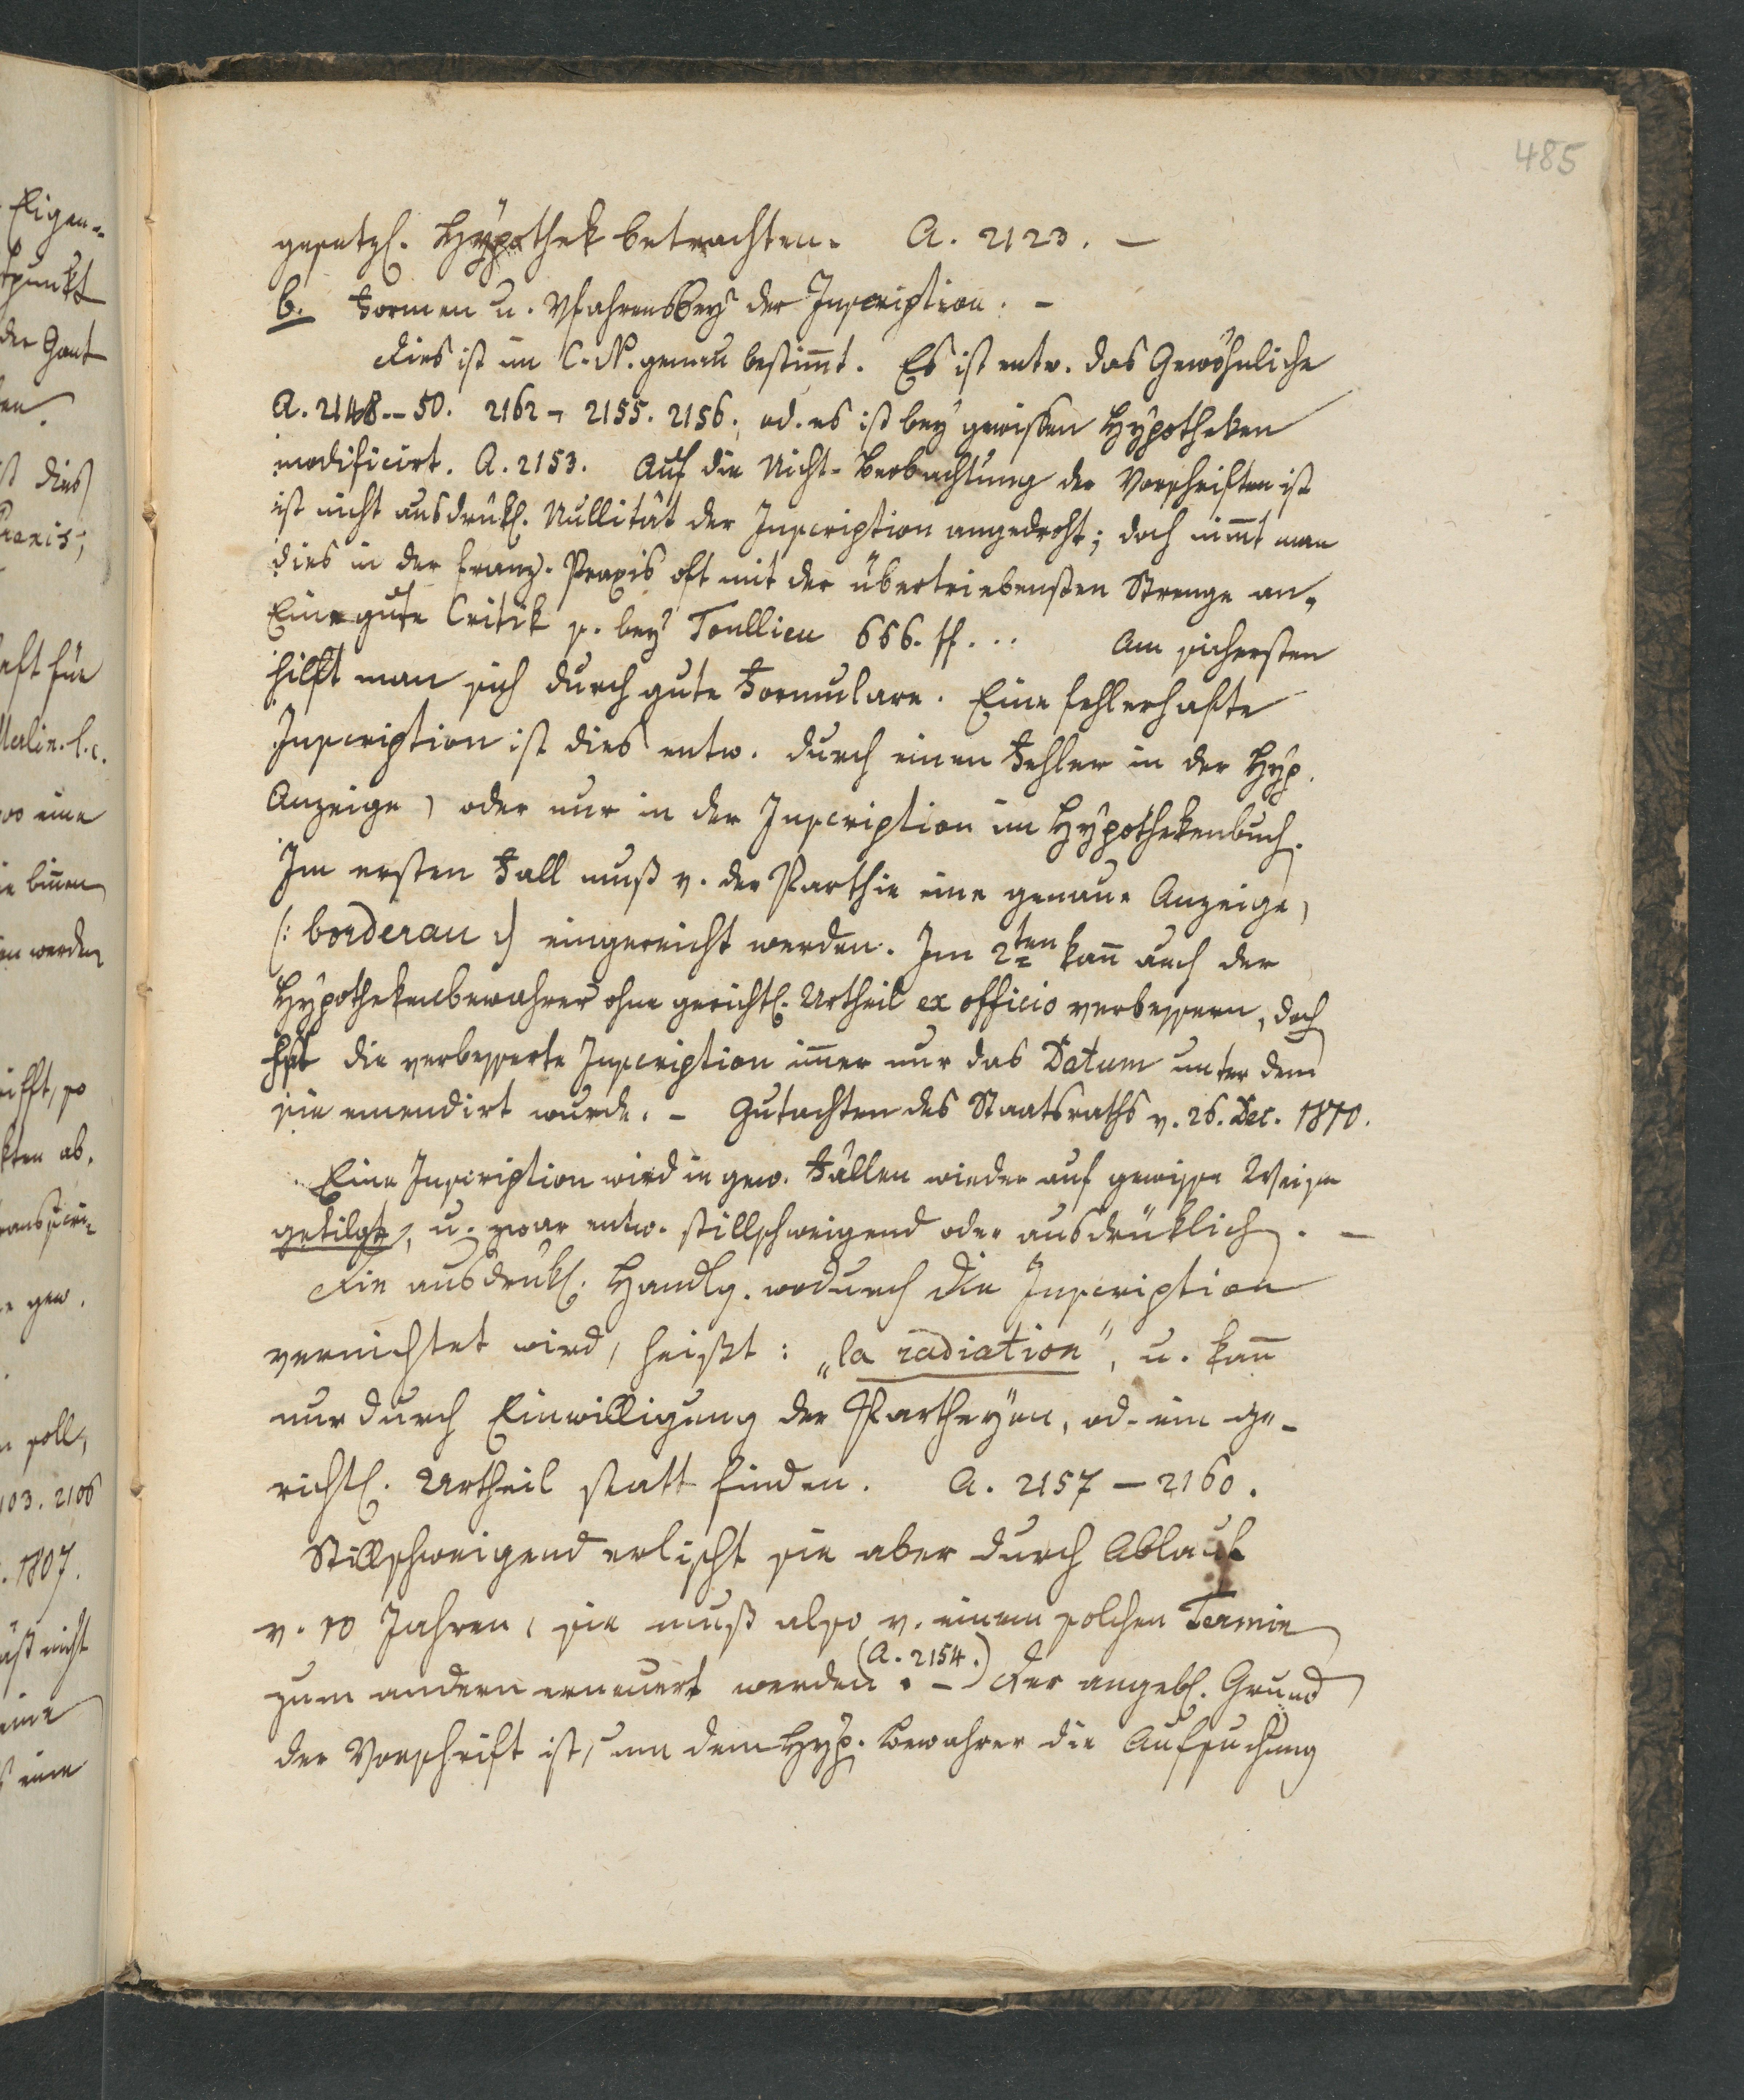 485
gesetzl. Hypothek betrachten. A. 2123. –
b. Formen u. Vfahren bey der Inscription. –
Dies ist im C. N. genau bestim̄t. Es ist entw. das Gewöhnliche
A. 2148–50. 2162 – 2155. 2156., od. es ist bey gewissen Hypotheken
modificirt. A. 2153. Auf die Nicht-Beobachtung der Vorschriften ist
ist nicht ausdrükl. Nullität der Inscription angedroht; doch nim̄t man
dies in der franz. Praxis oft mit der übertriebensten Strenge an.
Eine gute Critik s. bey Toullieu 666. ff... Am sichersten
hilft man sich durch gute Formulare. Eine fehlerhafte
Inscription ist dies entw. durch einen Fehler in der Hyp.
Anzeige, oder nur in der Inscription im Hypothekenbuch.
Im ersten Fall muß v. der Parthie eine genaue Anzeige,
(: borderau :) eingereicht werden. Im 2ten kan̄ auch der
Hypothekenbewahrer ohne gerichtl. Urtheil ex officio verbessern, doch
hat die verbesserte Inscription im̄er nur das Datum unter dem
sie emendirt wurde. – Gutachten des Staatsraths v. 26. Dec. 1810.
Eine Inscription wird in gew. Fällen wieder auf gewisse Weise
getilgt, u. zwar entw. stillschweigend oder ausdrüklich. –
Die ausdrükl. Handlg. wodurch die Inscription
vernichtet wird, heißt: „la radiation“, u. kan̄
nur durch Einwilligung der Partheyen, od. ein ge-
richtl. Urtheil statt finden. A. 2157 – 2160.
Stillschweigend erlischt sie aber durch Ablauf
v. 10 Jahren, sie muß also v. einem solchen Termin
zum andern erneuert werden. (A. 2154.) – Der angebl. Grund
der Vorschrift ist, um dem Hyp. Bewahrer die Aufsuchung